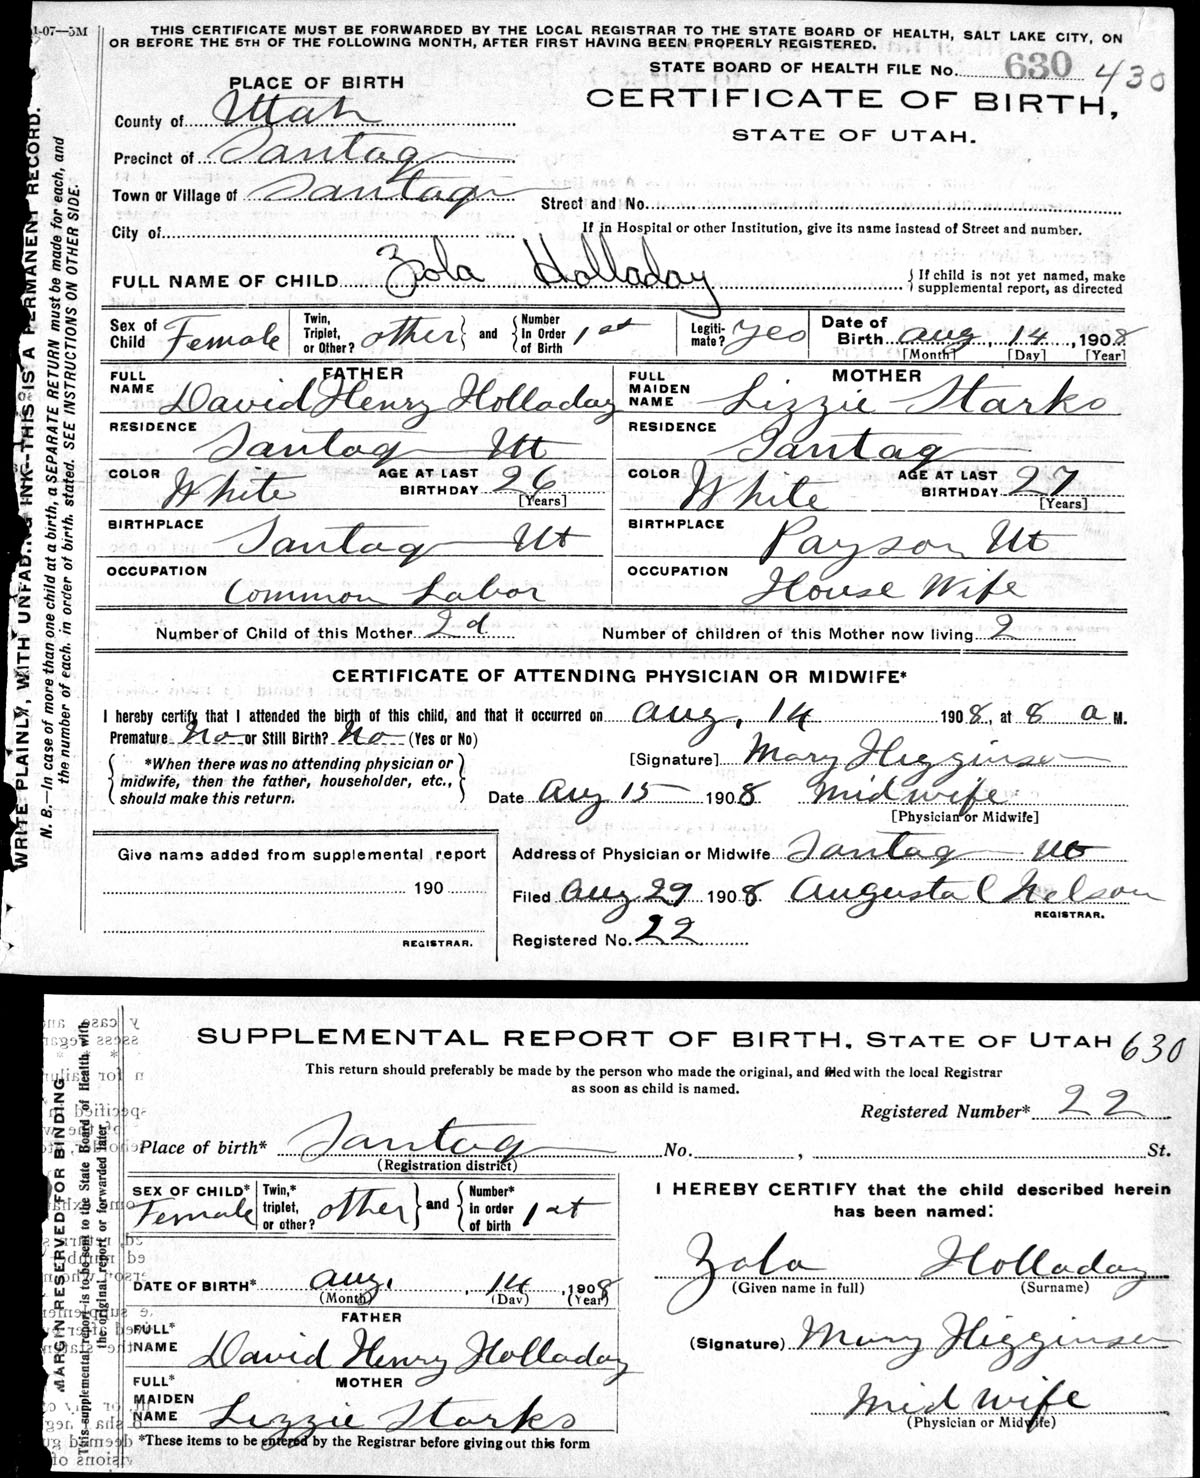 1-07—5M
THIS CERTIFICATE MUST BE FORWARDED BY THE LOCAL REGISTRAR TO THE STATE BOARD OF HEALTH, SALT LAKE CITY, ON
OR BEFORE THE 5TH OF THE FOLLOWING MONTH, AFTER FIRST HAVING BEEN PROPERLY REGISTERED.
STATE BOARD OF HEALTH FILE No. 630 430
PLACE OF BIRTH
CERTIFICATE OF BIRTH,
STATE OF UTAH.
County of Utah
Precinct of Santaq
Town or Village of Santaq
Street and No.
City of
If in Hospital or other Institution, give its name instead of Street and number.
FULL NAME OF CHILD Zola Holladay { If child is not yet named, make
supplemental report, as directed
Sex of Child Female Twin, Triplet, or Other? other } and { Number In Order of Birth 1st Legiti-mate? yes Date of Birth Aug, 14, 1908
[Month] [Day] [Year]
FATHER
FULL NAME David Henry Holladay
RESIDENCE Santaq Ut
COLOR White AGE AT LAST BIRTHDAY 26
[Years]
BIRTHPLACE Santaq Ut
OCCUPATION Common Labor
MOTHER
FULL MAIDEN NAME Lizzie Starks
RESIDENCE Santaq
COLOR White AGE AT LAST BIRTHDAY 27
[Years]
BIRTHPLACE Payson Ut
OCCUPATION House Wife
Number of Child of this Mother 2d Number of children of this Mother now living 2
CERTIFICATE OF ATTENDING PHYSICIAN OR MIDWIFE*
I hereby certify that I attended the birth of this child, and that it occurred on Aug, 14 1908, at 8 a M.
Premature No or Still Birth? No (Yes or No)
{ *When there was no attending physician or
midwife, then the father, householder, etc.,
should make this return. }
[Signature] Mary Higginson
Date Aug 15 1908 Mid wife
[Physician or Midwife]
Give name added from supplemental report
190
REGISTRAR.
Address of Physician or Midwife Santaq Ut
Filed Aug 29 1908 Augusta C Nelson
REGISTRAR.
Registered No. 22
WRITE PLAINLY, WITH UNFADING INK--THIS IS A PERMANENT RECORD.
N. B.—In case of more than one child at a birth, a SEPARATE RETURN must be made for each, and
the number of each, in order of birth, stated. SEE INSTRUCTIONS ON OTHER SIDE.
SUPPLEMENTAL REPORT OF BIRTH, STATE OF UTAH 630
This return should preferably be made by the person who made the original, and filed with the local Registrar
as soon as child is named.
Registered Number* 22
Place of birth* Santaq No. , St.
(Registration district)
SEX OF CHILD* Female Twin,* triplet, or other? other } and { Number* in order of birth 1st
DATE OF BIRTH* Aug. 14, 1908
(Month) (Day) (Year)
FATHER
FULL* NAME David Henry Holladay
MOTHER
FULL* MAIDEN NAME Lizzie Starks
*These items to be entered by the Registrar before giving out this form
I HEREBY CERTIFY that the child described herein
has been named:
Zola Holladay
(Given name in full) (Surname)
(Signature) Mary Higginson
Mid wife
(Physician or Midwife)
MARGIN RESERVED FOR BINDING
This supplemental report is to be sent to the State Board of Health with
the original report or forwarded later